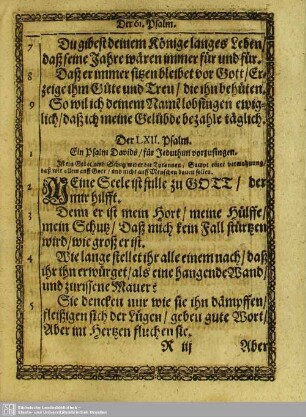 Der 61. Psalm.
7 Du gibest deinem Könige langes Leben/
daß seine Jahre wären immer für und für.
8 Daß er immer sitzen bleibet vor Gott/ Er-
zeige ihm Güte und Treu/ die ihn behüten.
9 So wil ich deinem Namē lobsingen ewig-
lich/ daß ich meine Gelübde bezahle täglich.
Der LXII. Psalm.
Ein Psalm Davids/ für Jeduthun vorzusingen.
Ist ein Gebet umb Schutz wider die Tyrannen/ Sampt einer vermahnung/
daß wir allein auff Gott/ und nicht auff Menschen bauen sollen.
2 MEine Seele ist stille zu GOTT/ der
mir hilfft.
3 Denn er ist mein Hort/ meine Hülffe/
mein Schutz/ Daß mich kein Fall stürtzen
wird/ wie groß er ist.
4 Wie lange stellet ihr alle einem nach/ daß
ihr ihn erwürget/ als eine hangende Wand/
und zurissene Mauer?
5 Sie dencken nur wie sie ihn dämpffen/
fleißigen sich der Lügen/ geben gute Wort/
Aber im Hertzen fluchen sie.
R iij Aber